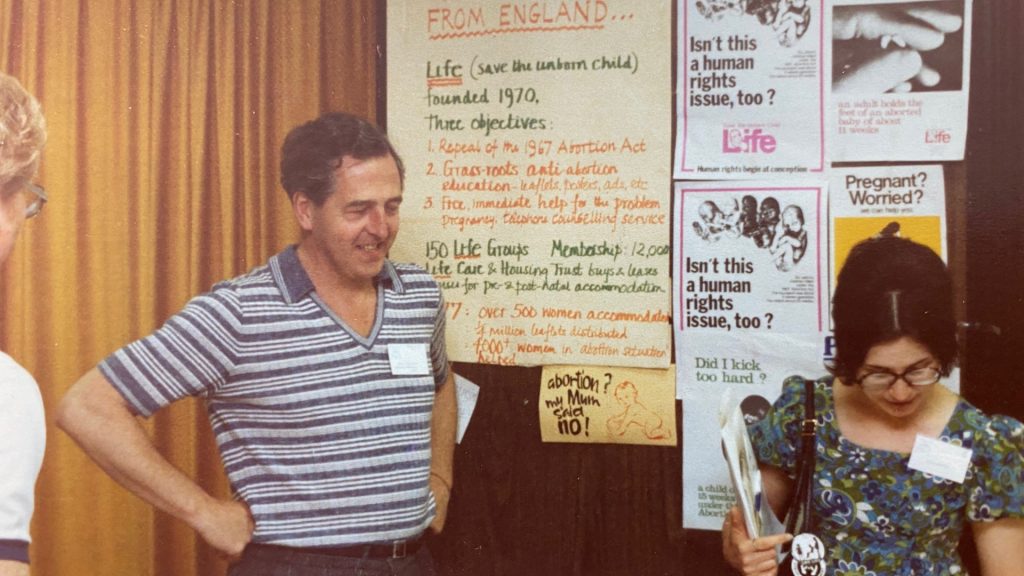 FROM ENGLAND...
Life (save the unborn child)
founded 1970,
Three objectives:
1. Repeal of the 1967 Abortion Act
2. Grass-roots anti abortion
education - leaflets, posters, ads, etc
3. Free, immediate help for the problem
pregnancy, telephone counselling service
150 Life Groups Membership: 12,000
Life Care & Housing Trust buys & leases
for pre- & post-natal accommodation
7: over 500 women accommodated
million leaflets distributed
women in abortion situation
helped
abortion?
my Mum
said
no!
Isn't this
a human
rights
issue, too?
Life
Human rights begin at conception
an adult holds the
feet of an aborted
baby of about
11 weeks
Life
Isn't this
a human
rights
issue, too?
Pregnant?
Worried?
we can help you
P
Did I kick
too hard?
a child o
18 weeks
under
Abort